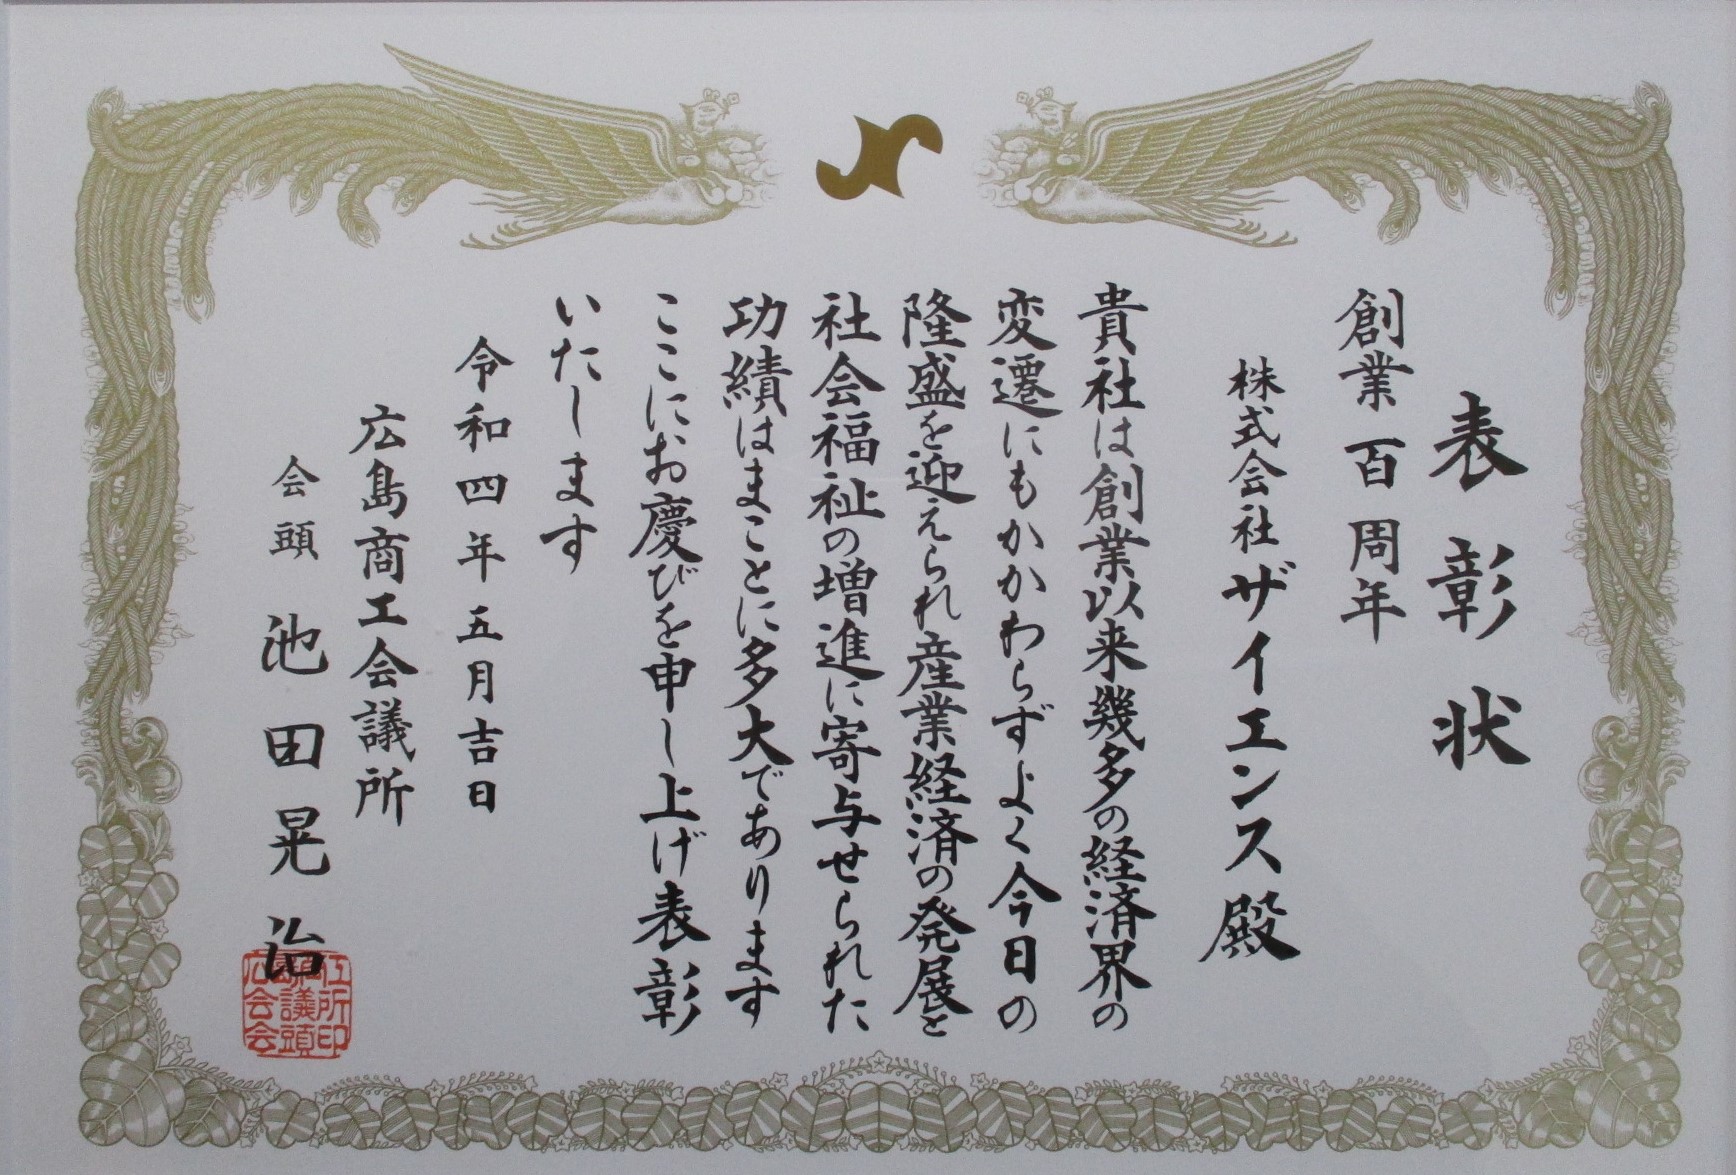 表彰状
創業百周年
株式会社ザイエンス殿
貴社は創業以来幾多の経済界の
変遷にもかかわらずよく今日の
隆盛を迎えられ産業経済の発展と
社会福祉の増進に寄与せられた
功績はまことに多大であります
ここにお慶びを申し上げ表彰
いたします
令和四年五月吉日
広島商工会議所
会頭 池田晃治